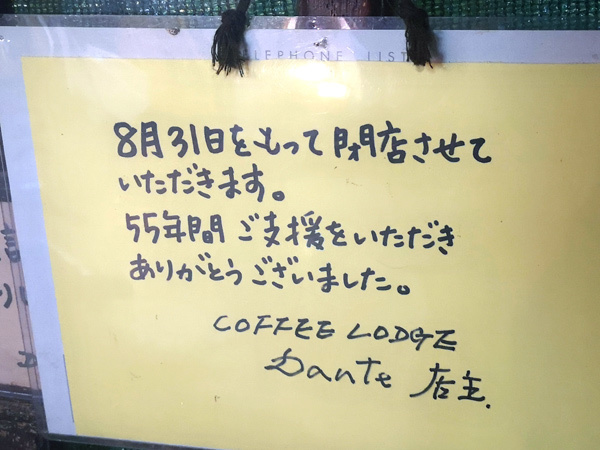 TELEPHONE LIST
8月31日をもって閉店させて
いただきます。
55年間ご支援をいただき
ありがとうございました。
COFFEE LODGE
Dante 店主.